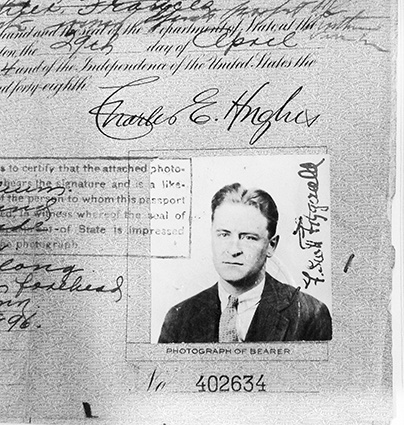 seal of the Department of State at the
the 29th day of April
4 and of the Independence of the United States the
nd forty-eighth
Charles E. Hughes
s to certify that the attached photo-
bears the signature and is a like-
of the person to whom this passport
ed, in witness whereof the seal of
ent of State is impressed
e photograph.
long
forehead
96.
F. Scott Fitzgerald
PHOTOGRAPH OF BEARER
No 402634